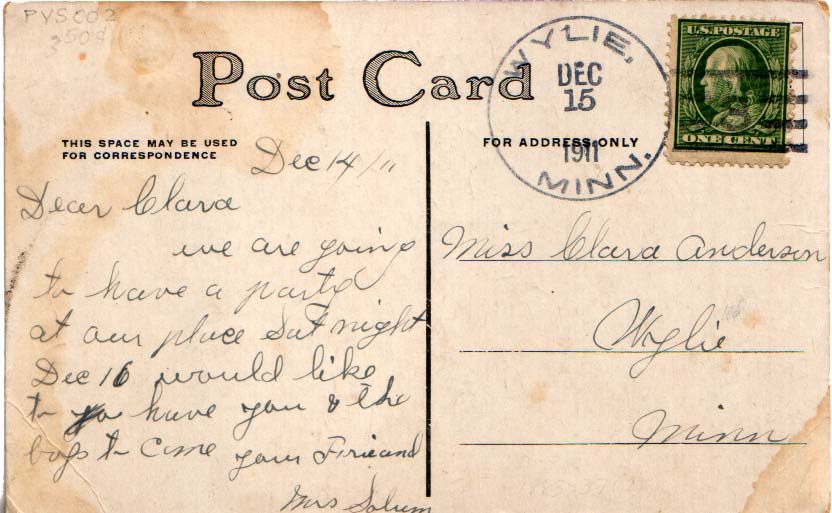 PVSC02
350d
Post Card
THIS SPACE MAY BE USED
FOR CORRESPONDENCE
FOR ADDRESS ONLY
WYLIE.
DEC
15
1911
MINN.
U.S. POSTAGE
ONE CENT
Dec 14/11
Dear Clara
we are going
to have a party
at our place Sat night
Dec 16 would like
to have you & the
boys to come your Frieand
Mrs Solum
Miss Clara Anderson
Wylie
Minn